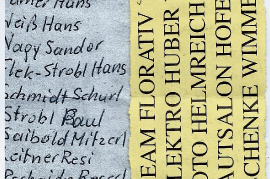 Hans
Weiß Hans
Nagy Sandor
Flek-Strobl Hans
Schmidt Schurl
Strobl Paul
Saibold Mitzerl
Leitner Resi
TEAM FLORATIV
ELEKTRO HUBER
FOTO HELMREICH
HAUTSALON HOFE
SCHENKE WIMME